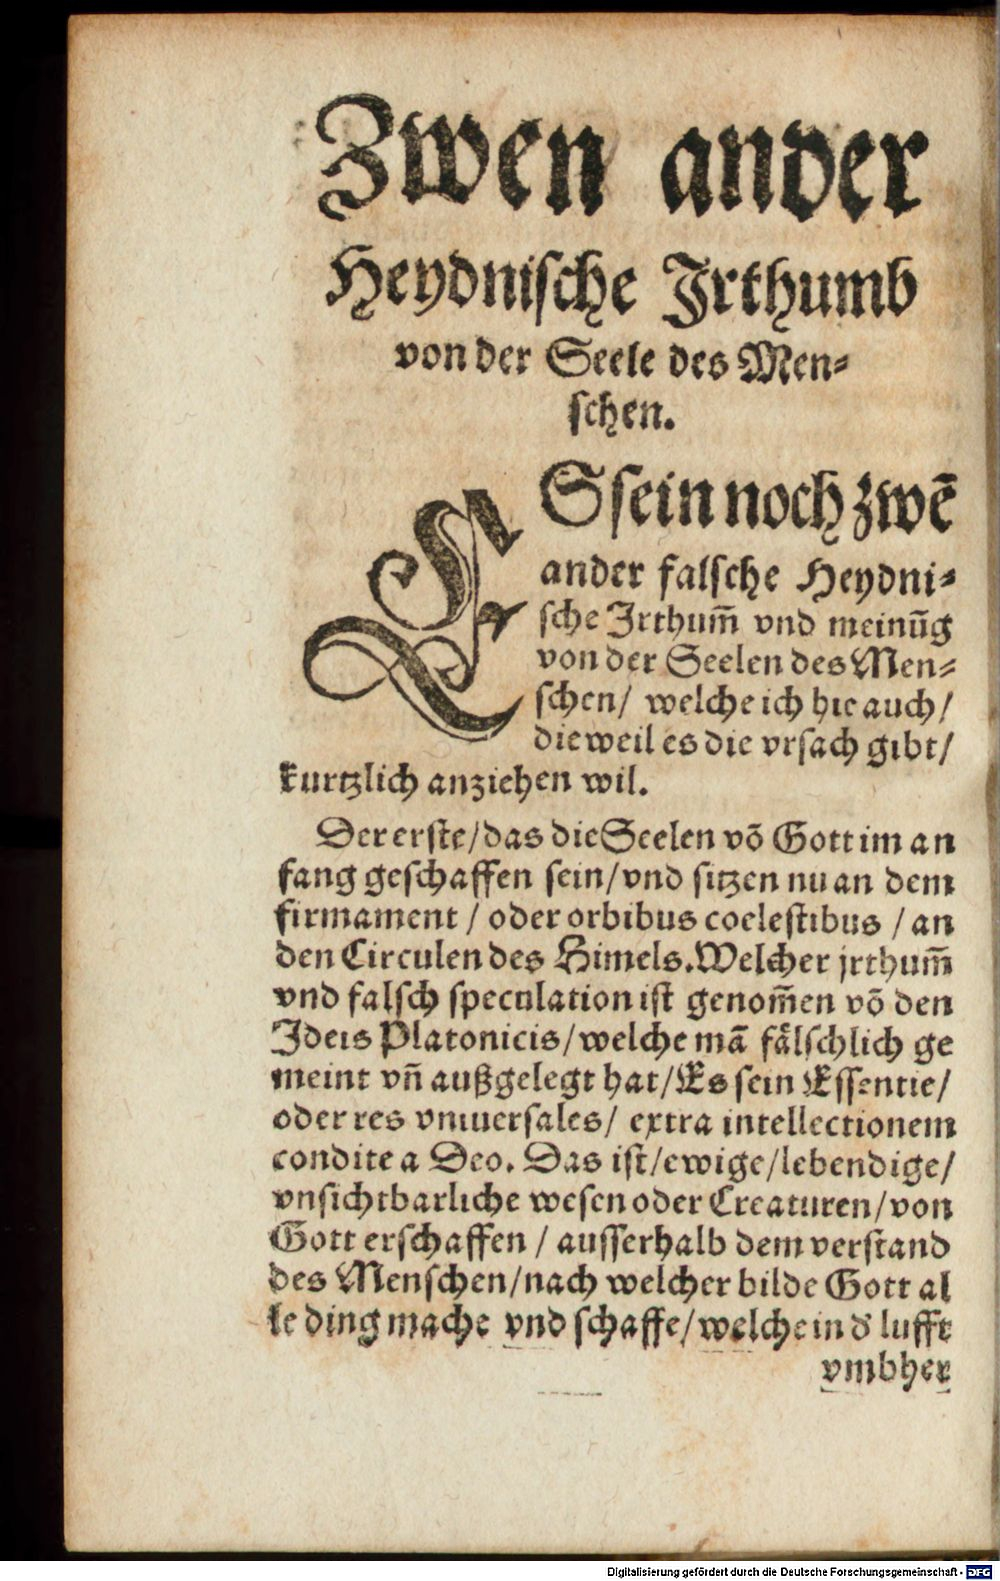 Zwen ander
Heydnische Jrthumb
von der Seele des Men⸗
schen.
ES sein noch zwē
ander falsche Heydni⸗
sche Jrthum̄ vnd meinūg
von der Seelen des Men⸗
schen/ welche ich hie auch/
die weil es die vrsach gibt/
kurtzlich anziehen wil.
Der erste/das die Seelen vō Gott im an
fang geschaffen sein/vnd sitzen nu an dem
firmament / oder orbibus coelestibus / an
den Circulen des Himels.Welcher jrthum̄
vnd falsch speculation ist genom̄en vō den
Jdeis Platonicis/welche mā fälschlich ge
meint vn̄ außgelegt hat/Es sein Essentie/
oder res vniuersales/ extra intellectionem
condite a Deo. Das ist/ewige/lebendige/
vnsichtbarliche wesen oder Creaturen/von
Gott erschaffen / ausserhalb dem verstand
des Menschen/nach welcher bilde Gott al
le ding mache vnd schaffe/welche in d' lufft
vmbher
Digitalisierung gefördert durch die Deutsche Forschungsgemeinschaft - DFG